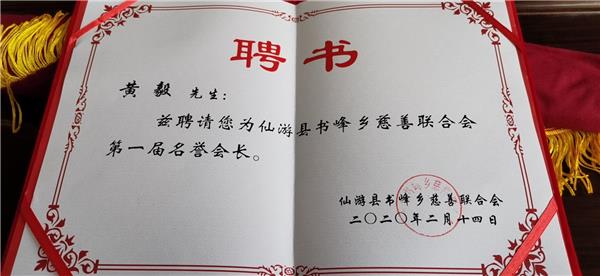 聘书
黄毅 先生:
兹聘请您为仙游县书峰乡慈善联合会
第一届名誉会长。
仙游县书峰乡慈善联合会
二〇二〇年二月十四日